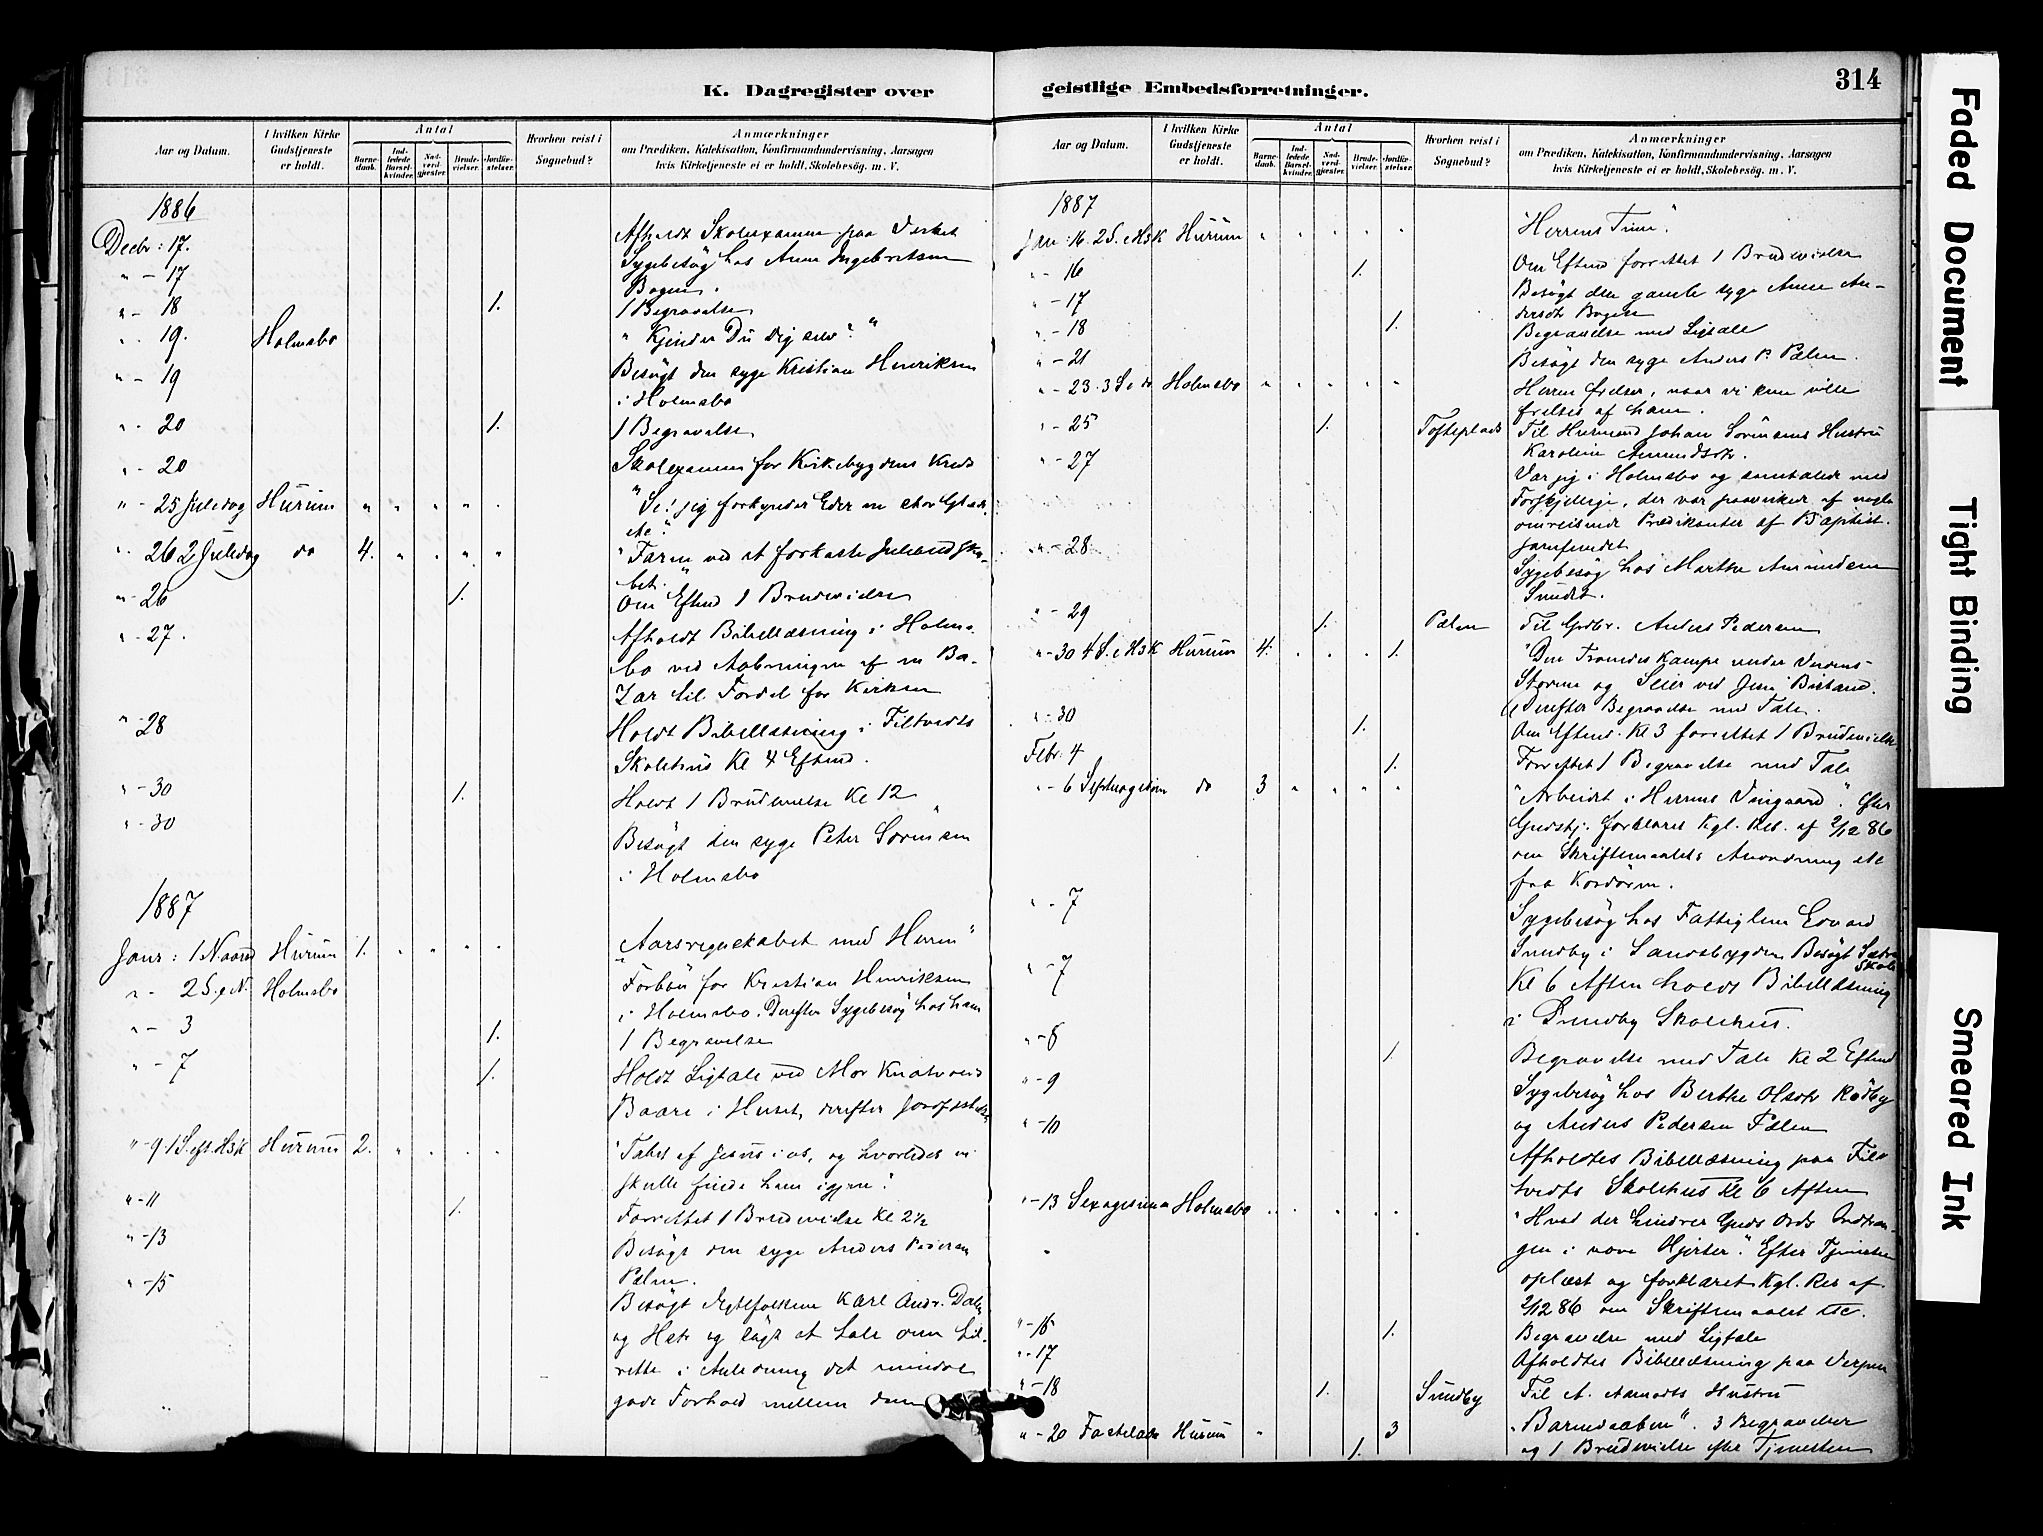 K. Dagregister over
Aar og Datum.
I hvilken Kirke Gudstjeneste er holdt.
Antal
Barne-daab.
Ind-ledede Barsel-kvinder.
Nad-verd-gjester.
Brude-vielser.
Jordfæ-stelser.
Hvorhen reist i Sognebud?
Anmærkninger
om Prædiken, Katekisation, Konfirmandundervisning, Aarsagen
hvis Kirketjeneste ei er holdt, Skolebesög. m. V.
1886
Decbr: 17. Afholdt Skolexamen paa Verket
" - 17 Sygebesög hos Anne Ingebretsen
Bogen.
" - 18 1. 1 Begravelse
" - 19. Holmsbo "Kjender Du Dig selv?"
" - 19 Besögt den syge Kristian Henriksen
i Holmsbo
" - 20 1. 1 Begravelse
" - 20 Skolexamen for Kirkebygdens Kreds
" - 25 Juledag Hurum " " " " " "Se! jeg forkynder Eder en stor Glæde,
etc."
" 26 2 Juledag do 4. " " " " "Faren ved at forkaste Julebudska-
bet."
" - 26 1. Om Eftmd 1 Brudevielse
" - 27. Afholdt Bibellæsning i Holms-
bo ved Aabningen af en Ba-
zar til Fordel for Kirken
" - 28 Holdt Bibellæsning i Filtvedts
Skolehus Kl 4 Eftmd.
" - 30 1. Holdt 1 Brudevielse Kl 12
" - 30 Besögt den syge Peter Sörensen
i Holmsbo
1887
Janr: 1 Naard Hurum 1. " " " " "Aarsregnskabet med Herren"
" - 2 S.e.N. Holmsbo Forbön for Kristian Henriksen
i Holmsbo. Derefter Sygebesög hos ham
" - 3 1. 1 Begravelse
" - 7 1. Holdt Ligtale ved Mor Knatvolds
Baare i Huset, derefter Jordfæstelse
" - 9 1 S. eft. H3K Hurum 2. " " " " "Tabet af Jesus i os, og hvorledes vi
skulle finde ham igjen."
" - 11 1. Forrettet 1 Brudevielse Kl 2½
" - 13 Besögt den syge Anders Pedersen
Pælen.
" - 15 Besögt Ægtefolkene Karl Andr. Dalen
og Hstr og sögt at tale dem til-
rette i Anledning det mindre
gode Forhold mellem dem
geistlige Embedsforretninger.
314
Aar og Datum.
I hvilken Kirke Gudstjeneste er holdt.
Antal
Barne-daab.
Ind-ledede Barsel-kvinder.
Nad-verd-gjester.
Brude-vielser.
Jordfæ-stelser.
Hvorhen reist i Sognebud?
Anmærkninger
om Prædiken, Katekisation, Konfirmandundervisning, Aarsagen
hvis Kirketjeneste ei er holdt, Skolebesög. m. V.
1887
Jan: 16. 2 S. e H3K Hurum " " " " " "Herrens Time".
" - 16 1. Om Eftmd forrettet 1 Brudevielse
" - 17 Besögt den gamle syge Anne An-
dersdt Bogen
" - 18 1. Begravelse med Ligtale
" - 21 Besögt den syge Anders P. Pælen.
" - 23. 3 S e do Holmsbo " " " " " Herren frelser, naar vi kun ville
frelses af ham.
" - 25 1. Tofteplads Til Husmand Johan Sörensens Hustru
Karoline Amundsdtr.
" - 27 Var jeg i Holmsbo og samtalede med
Forskjellige, der var paavirket af nogle
omreisende Prædikanter af Baptist-
samfundet
" - 28 Sygebesög hos Marthe Amundsen
Sundet.
" - 29 1. Pælen Til Grdbr. Anders Pedersen
" - 30 4 S. e H3K Hurum 4. " " " 1. "Den Troendes Kampe under Verdens-
Storme og Seier ved Jesu Bistand.
Derefter Begravelse med Tale.
" - 30 1. Om Eftmd. Kl 3 forrettet 1 Brudevielse
Febr: 4 1. Forrettet 1 Begravelse med Tale
" - 6 Septuagesim do 3 " " " " "Arbeidet i Herrens Vingaard". Efter
Gudstj. forklaret Kgl. Res. af 2/12 86
om Skriftemaalets Anordning etc
fra Kordören.
" - 7 Sygebesög hos Fattiglem Edvard
Sundby i Sandsbygden Besögt Sætre Skole
" - 7 Kl 6 Aften holdt Bibellæsning
i Grundby Skolehus.
" - 8 1. Begravelse med Tale Kl 2 Eftmd
" - 9 Sygebesög hos Berthe Olsdtr Rödby
og Anders Pedersen Pælen
" - 10 Afholdtes Bibellæsning paa Filt-
vedts Skolehus Kl 6 Aften
" - 13 Sexagesima Holmsbo " " " " " "Hvad der hindrer Guds Ords Indtræn-
gen i vore Hjerter." Efter Tjenesten
oplæst og forklaret Kgl. Res af
2/12 86 om Skriftemaalet etc.
" - 15 1. Begravelse med Ligtale
" - 17 Afholdtes Bibellæsning paa Verpen
" - 18 1. Sundby Til A. Arnodts Hustru
" - 20 Fastelavn Hurum " 3 "Barnedaaben". 3 Begravelser
1. og 1 Brudevielse efter Tjenesten
Faded Document
Tight Binding
Smeared Ink